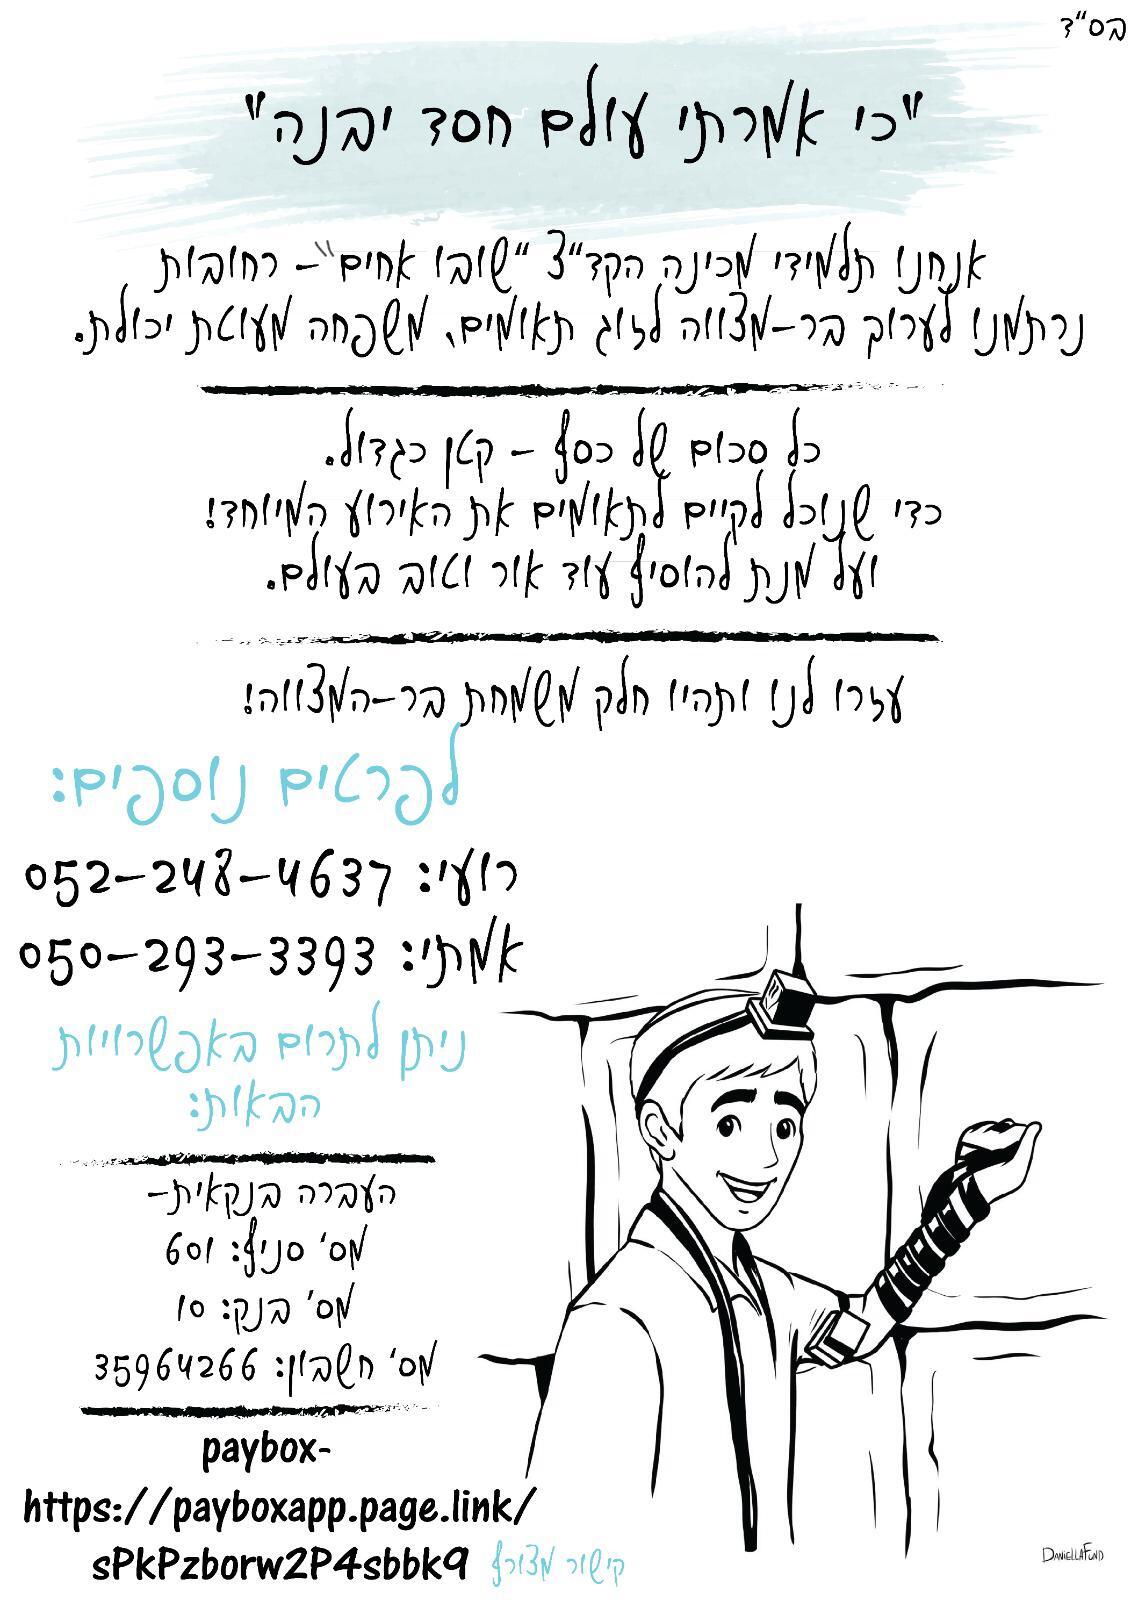 בס"ד
"כי אמרתי עולם חסד יבנה"
אנחנו תלמידי מכינה הקד"צ "שובו אחים"- רחובות
נרתמנו לערוך בר-מצווה לזוג תאומים, משפחה מעוטת יכולת.
כל סכום של כסף - קטן כגדול.
כדי שנוכל לקיים לתאומים את האירוע המיוחד!
ועל מנת להוסיף עוד אור וטוב בעולם.
עזרו לנו ותהיו חלק משמחת בר-המצווה!
לפרטים נוספים:
רועי: 052-248-4637
אמתי: 050-293-3393
ניתן לתרום באפשרויות
הבאות:
העברה בנקאית-
מס' סניף: 601
מס' בנק: 10
מס' חשבון: 35964266
paybox-
https://payboxapp.page.link/
sPkPzborw2P4sbbk9 קישור מצורף
DANIELLAFUND